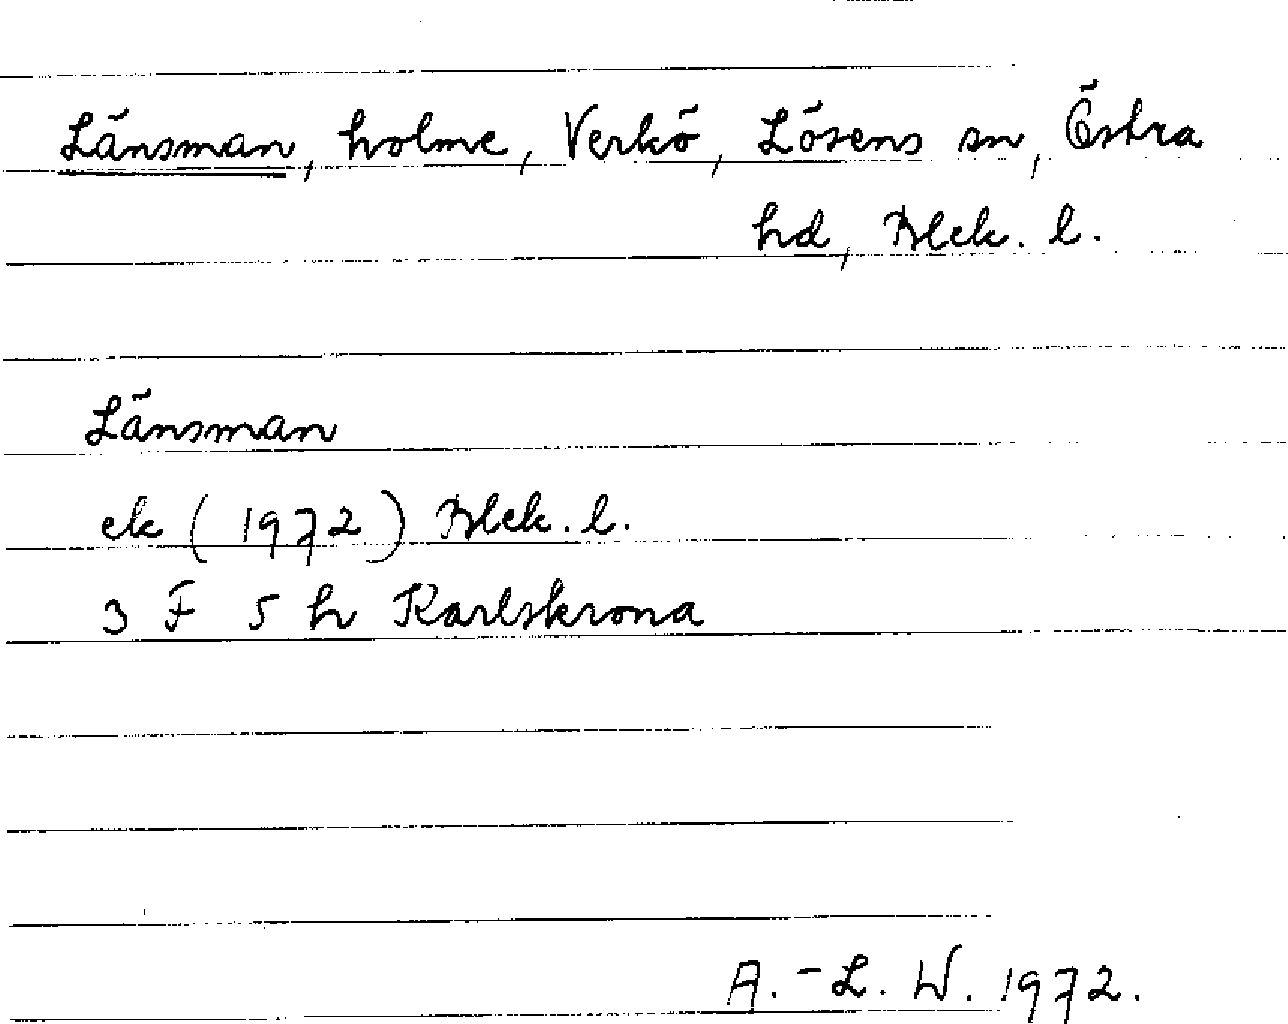 Länsman, holme, Verkö, Lösens sn, Östra
hd, Blek. l.
Länsman
ek (1972) Blek. l.
3 F 5 h Karlskrona
A.-L. W. 1972.